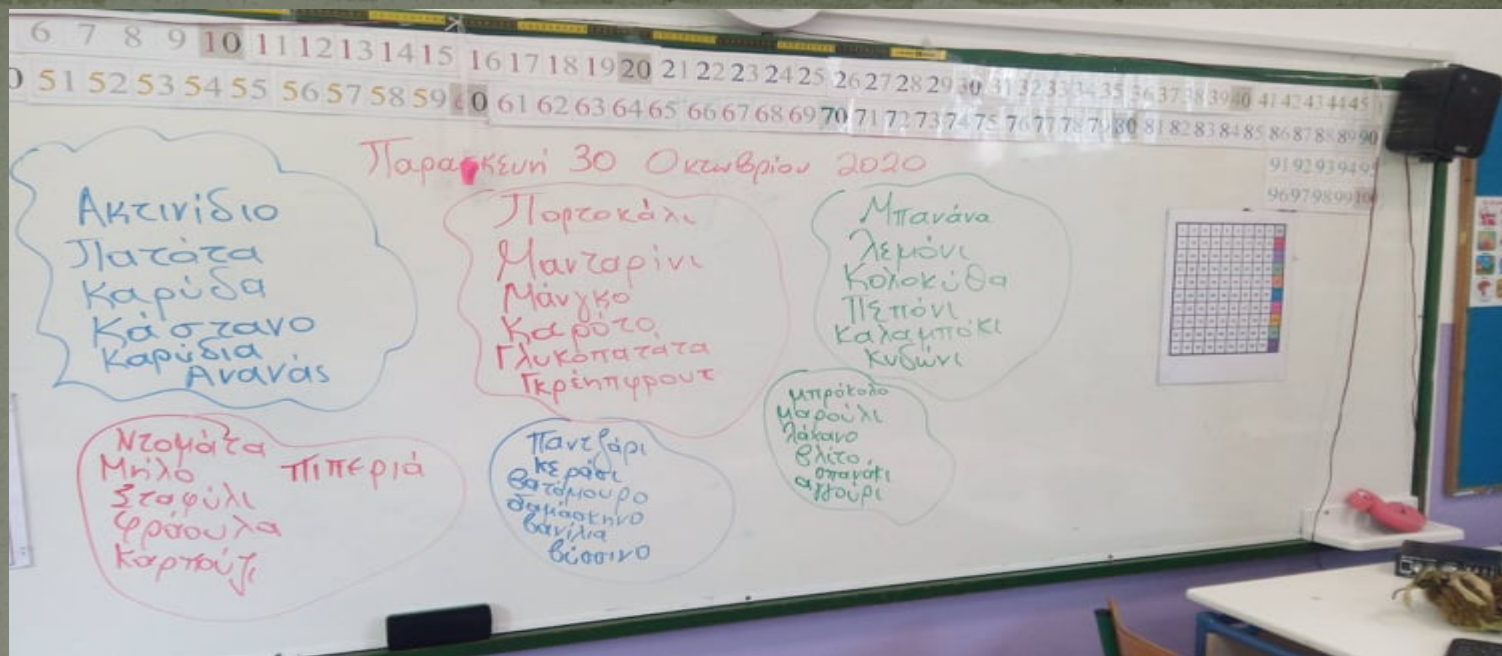 6 7 8 9 10 11 12 13 14 15 16 17 18 19 20 21 22 23 24 25 26 27 28 29 30 31 32 33 34 35 36 37 38 39 40 41 42 43 44 45
0 51 52 53 54 55 56 57 58 59 60 61 62 63 64 65 66 67 68 69 70 71 72 73 74 75 76 77 78 79 80 81 82 83 84 85 86 87 88 89 90
91 92 93 94 95
96 97 98 99 100
Παρασκευή 30 Οκτωβρίου 2020
Ακτινίδιο
Πατάτα
Καρύδα
Κάστανο
Καρύδια
Ανανάς
Πορτοκάλι
Μανταρίνι
Μάνγκο
Καρότο
Γλυκοπατάτα
Γκρέηπφρουτ
Μπανάνα
Λεμόνι
Κολοκύθα
Πεπόνι
Καλαμπόκι
Κυδώνι
Ντομάτα
Μήλο πιπεριά
Σταφύλι
Φράουλα
Καρπούζι
Παντζάρι
κεράσι
βατόμουρο
δαμάσκηνο
βανίλια
βύσσινο
μπρόκολο
μαρούλι
λάχανο
βλίτο
σπανάκι
αγγούρι